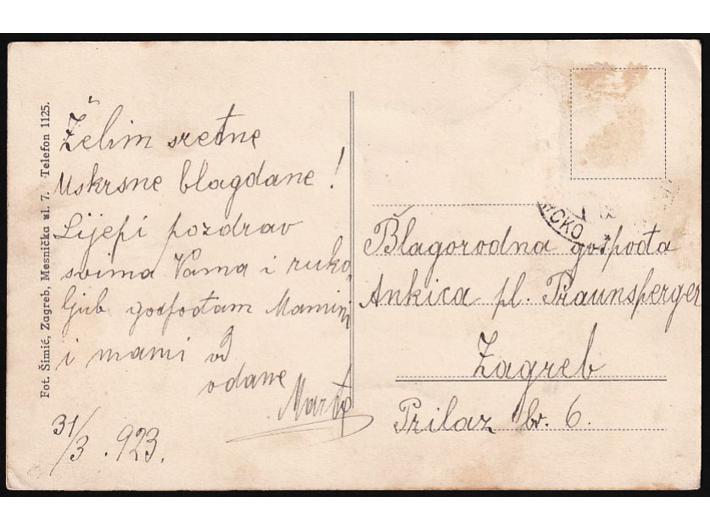 Fot. Šimić, Zagreb, Mesnička ul. 7. Telefon 1125.
Želim sretne
Uskrsne blagdane!
Lijepi pozdrav
svima Vama i ruko,
ljub gospođam Mamini
i mami od
odane
31/3. 923.
CKO
Blagorodna gospođa
Ankica pl. Praunsperger
Zagreb
Prilaz br. 6.